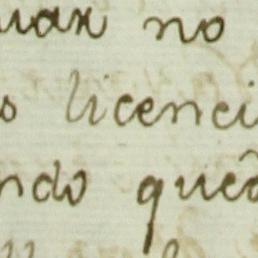 uar no
s licenci
ndo qued